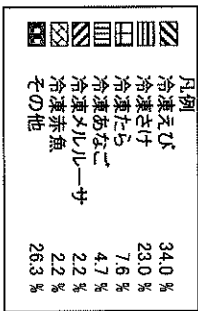 凡例
冷凍えび 34.0 %
冷凍さけ 23.0 %
冷凍たら 7.6 %
冷凍あなご 4.7 %
冷凍メルルーサ 2.2 %
冷凍赤魚 2.2 %
その他 26.3 %